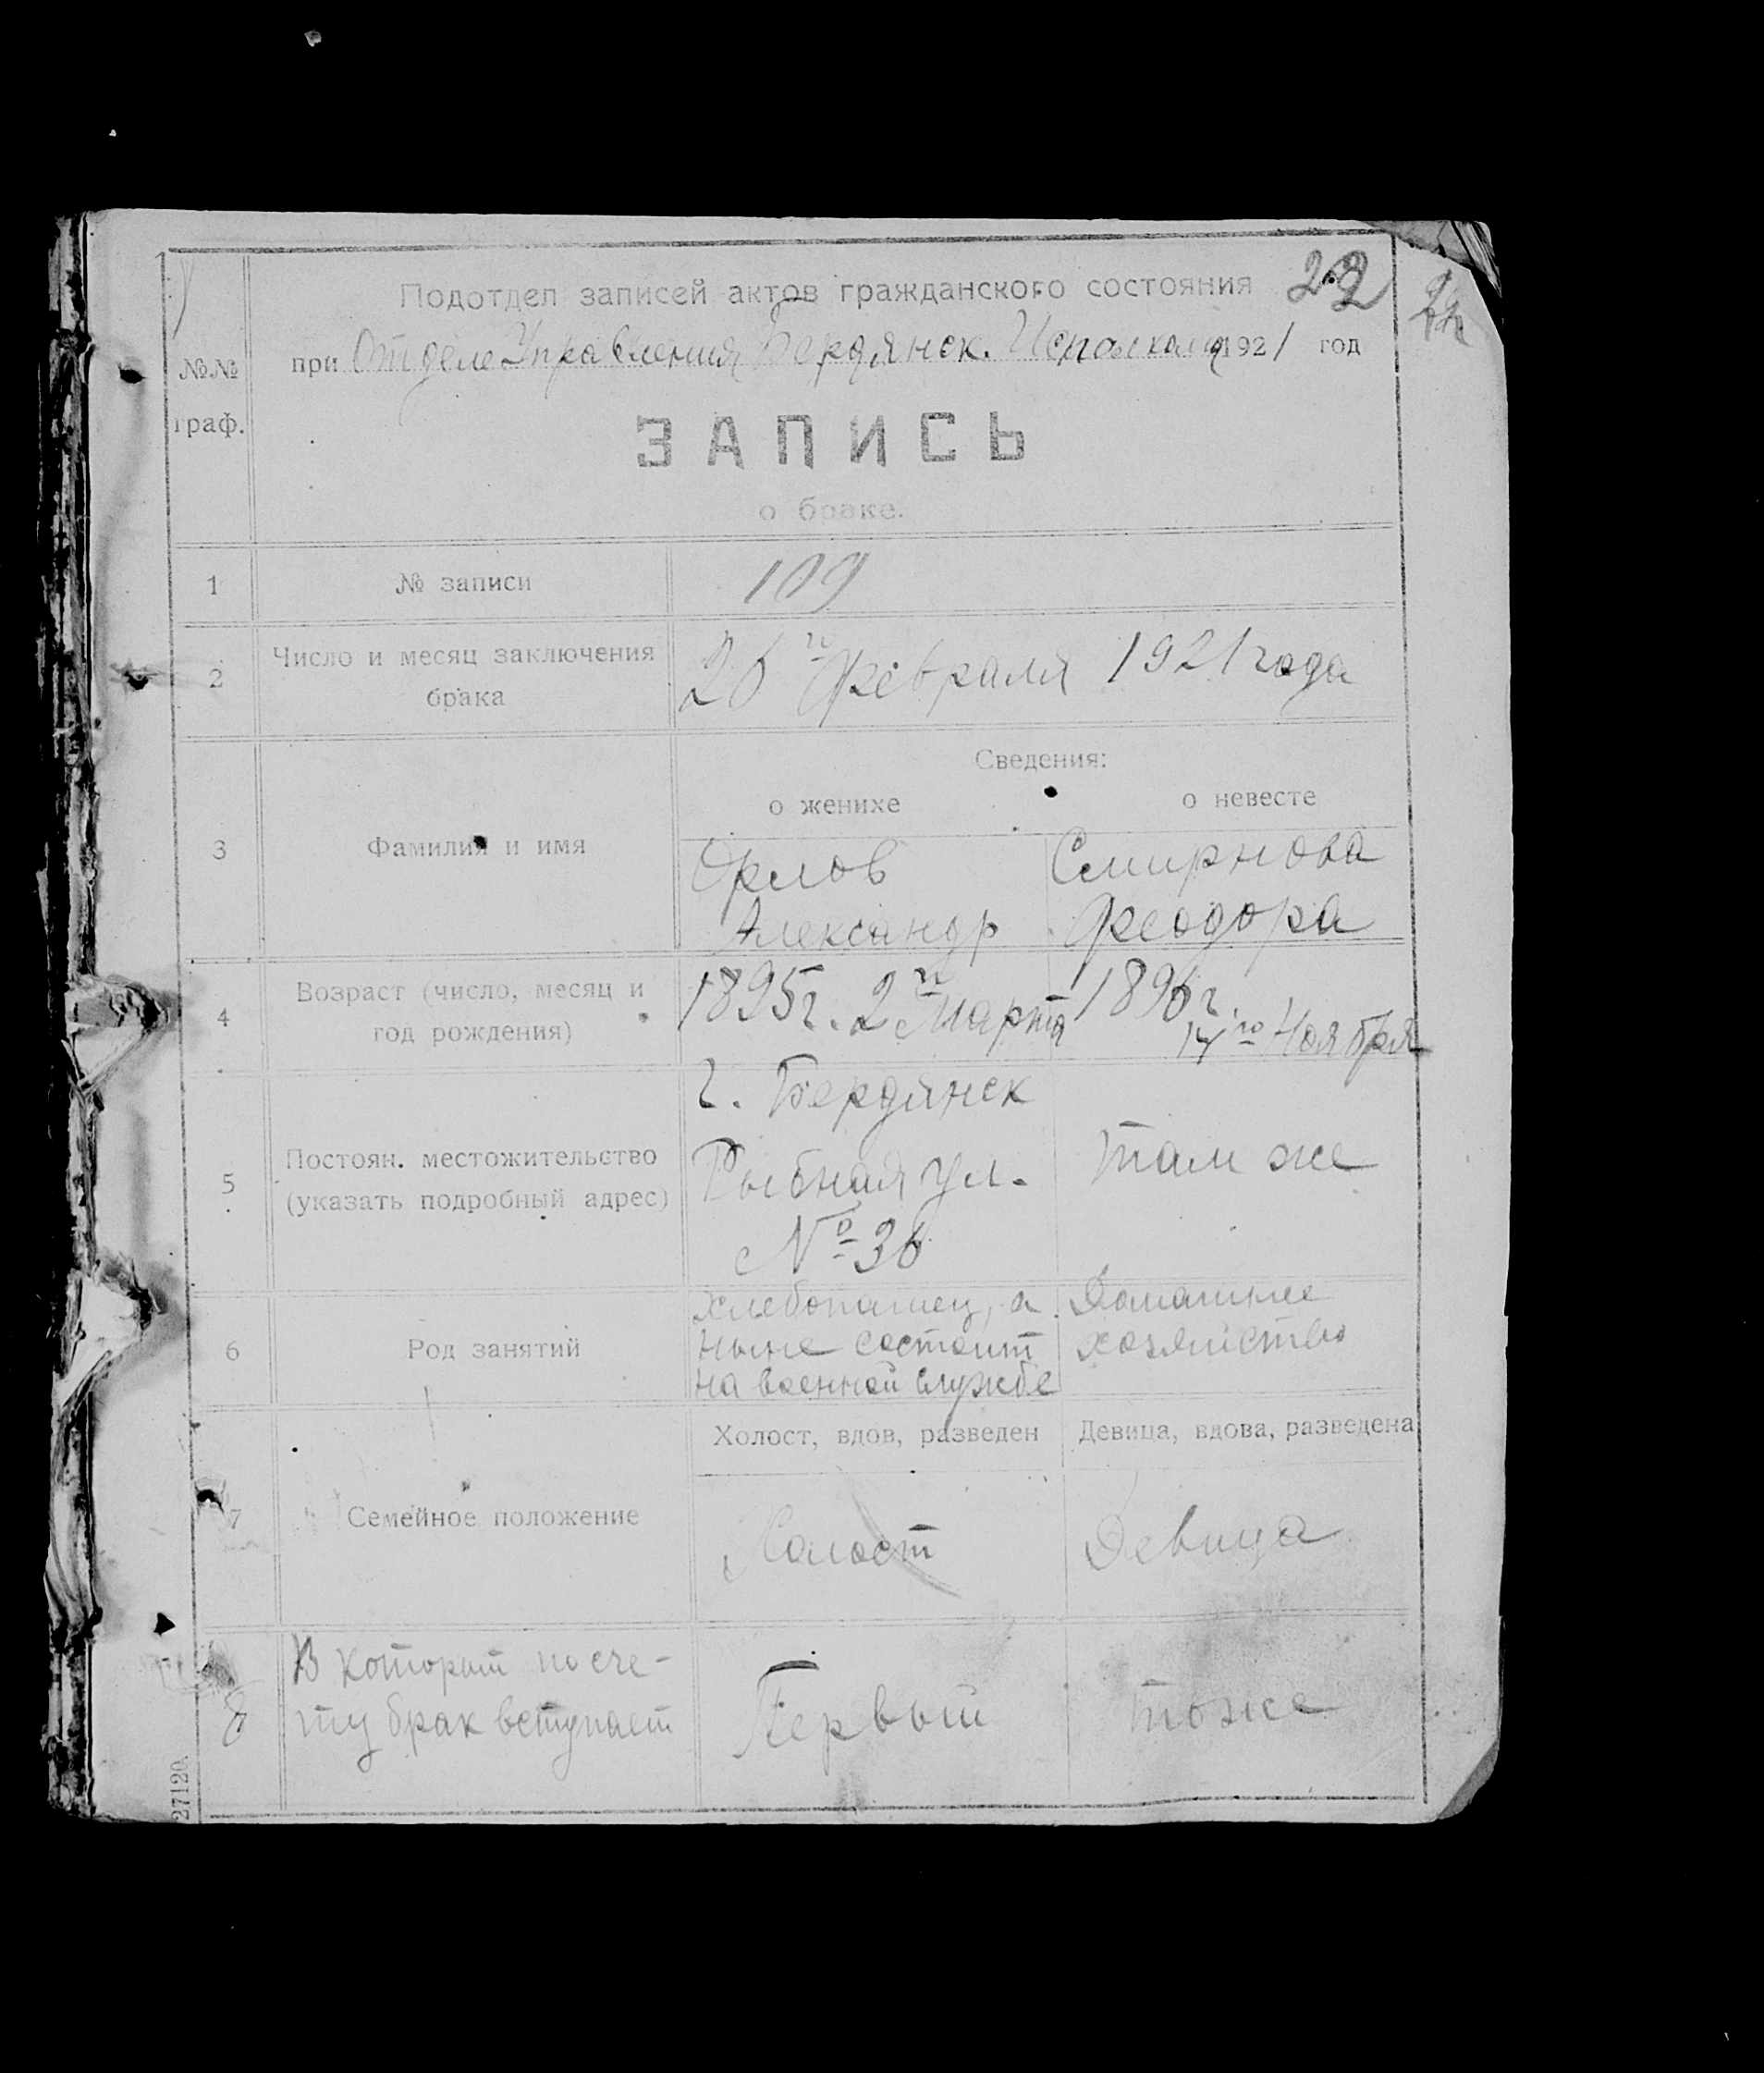 Подотдел записей актов гражданского состояния 22
при Отделе Управления Бердянск. Исполкома 1921 год
№№
граф.
ЗАПИСЬ
о браке.
1 № записи 109
2 Число и месяц заключения
брака
26го Февраля 1921 года
Сведения:
о женихе о невесте
3 Фамилия и имя
Орлов Смирнова
Александр Феодора
4 Возраст (число, месяц и
год рождения)
1895г. 2го Марта 1896г.
14го Ноября
5 Постоян. местожительство
(указать подробный адрес)
г. Бердянск
Рыбная ул. Там же
№ 36
6 Род занятий
Хлебопашец, а Домашнее
ныне состоит хозяйство
на военной службе
Холост, вдов, разведен Девица, вдова, разведена
7 Семейное положение
Холост Девица
8 В который по сче-
ту брак вступает
Первый тоже
27120